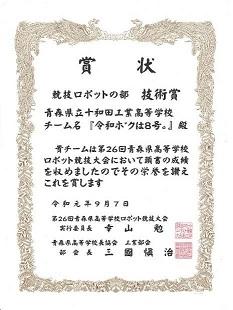 賞状
競技ロボットの部 技術賞
青森県立十和田工業高等学校
チーム名 『令和ボクは8号。』 殿
貴チームは第26回青森県高等学校
ロボット競技大会において頭書の成績
を収めましたのでその栄誉を讃え
これを賞します
令和元年9月7日
第26回青森県高等学校ロボット競技大会
実行委員長 幸山 勉
青森県高等学校長協会 工業部会
部会長 三國 愼治